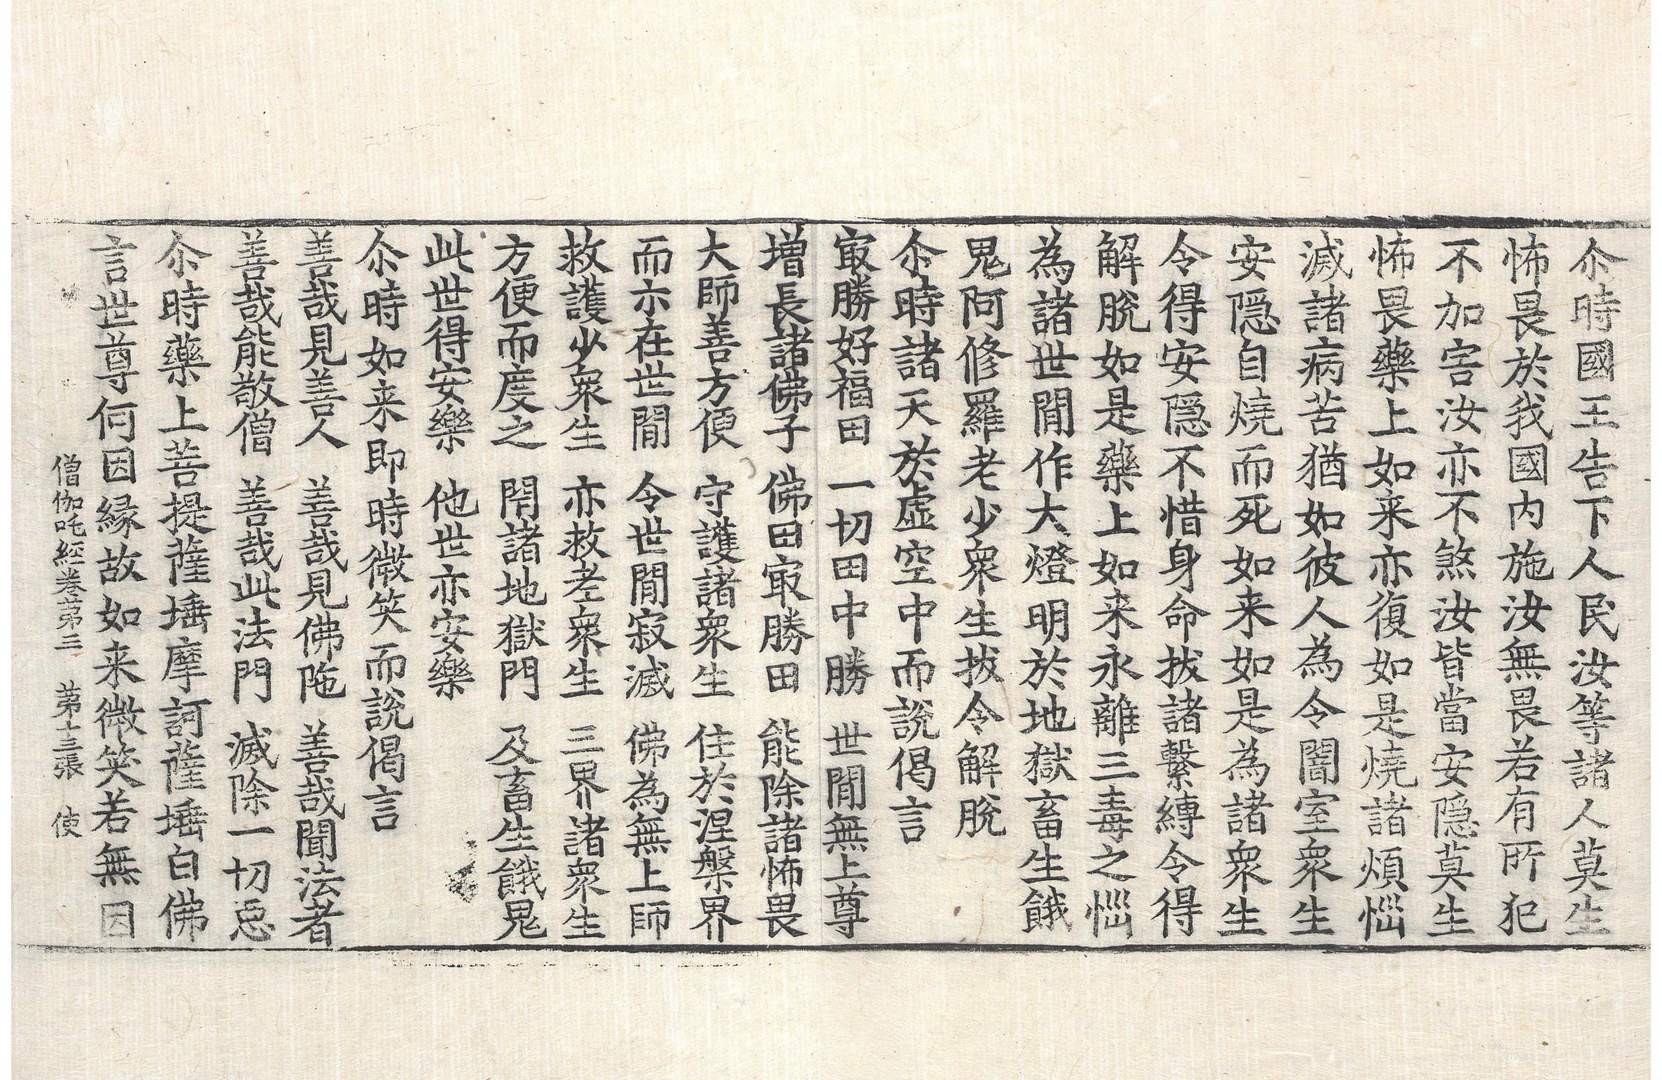 尒時國王告下人民汝等諸人莫生
怖畏於我國內施汝無畏若有所犯
不加害汝亦不煞汝皆當安隱莫生
怖畏藥上如来亦復如是燒諸煩惱
滅諸病苦猶如彼人為令闇室衆生
安隱自燒而死如来如是為諸衆生
令得安隱不惜身命拔諸繫縛令得
解脫如是藥上如来永離三毒之惱
為諸世閒作大燈明於地獄畜生餓
鬼阿修羅老少衆生拔令解脫
尒時諸天於虛空中而說偈言
㝡勝好福田　一切田中勝　世閒無上尊
增長諸佛子　佛田㝡勝田　能除諸怖畏
大師善方便　守護諸衆生　住於涅槃界
而亦在世閒　令世閒寂滅　佛為無上師
救護少衆生　亦救老衆生　三界諸衆生
方便而度之　閇諸地獄門　及畜生餓鬼
此世得安樂　他世亦安樂
尒時如来即時微笑而說偈言
善哉見善人　善哉見佛陁　善哉聞法者
善哉能敬僧　善哉此法門　滅除一切惡
尒時藥上菩提薩埵摩訶薩埵白佛
言世尊何因縁故如来微笑若無因
僧伽吒經卷第三　第十三張　使